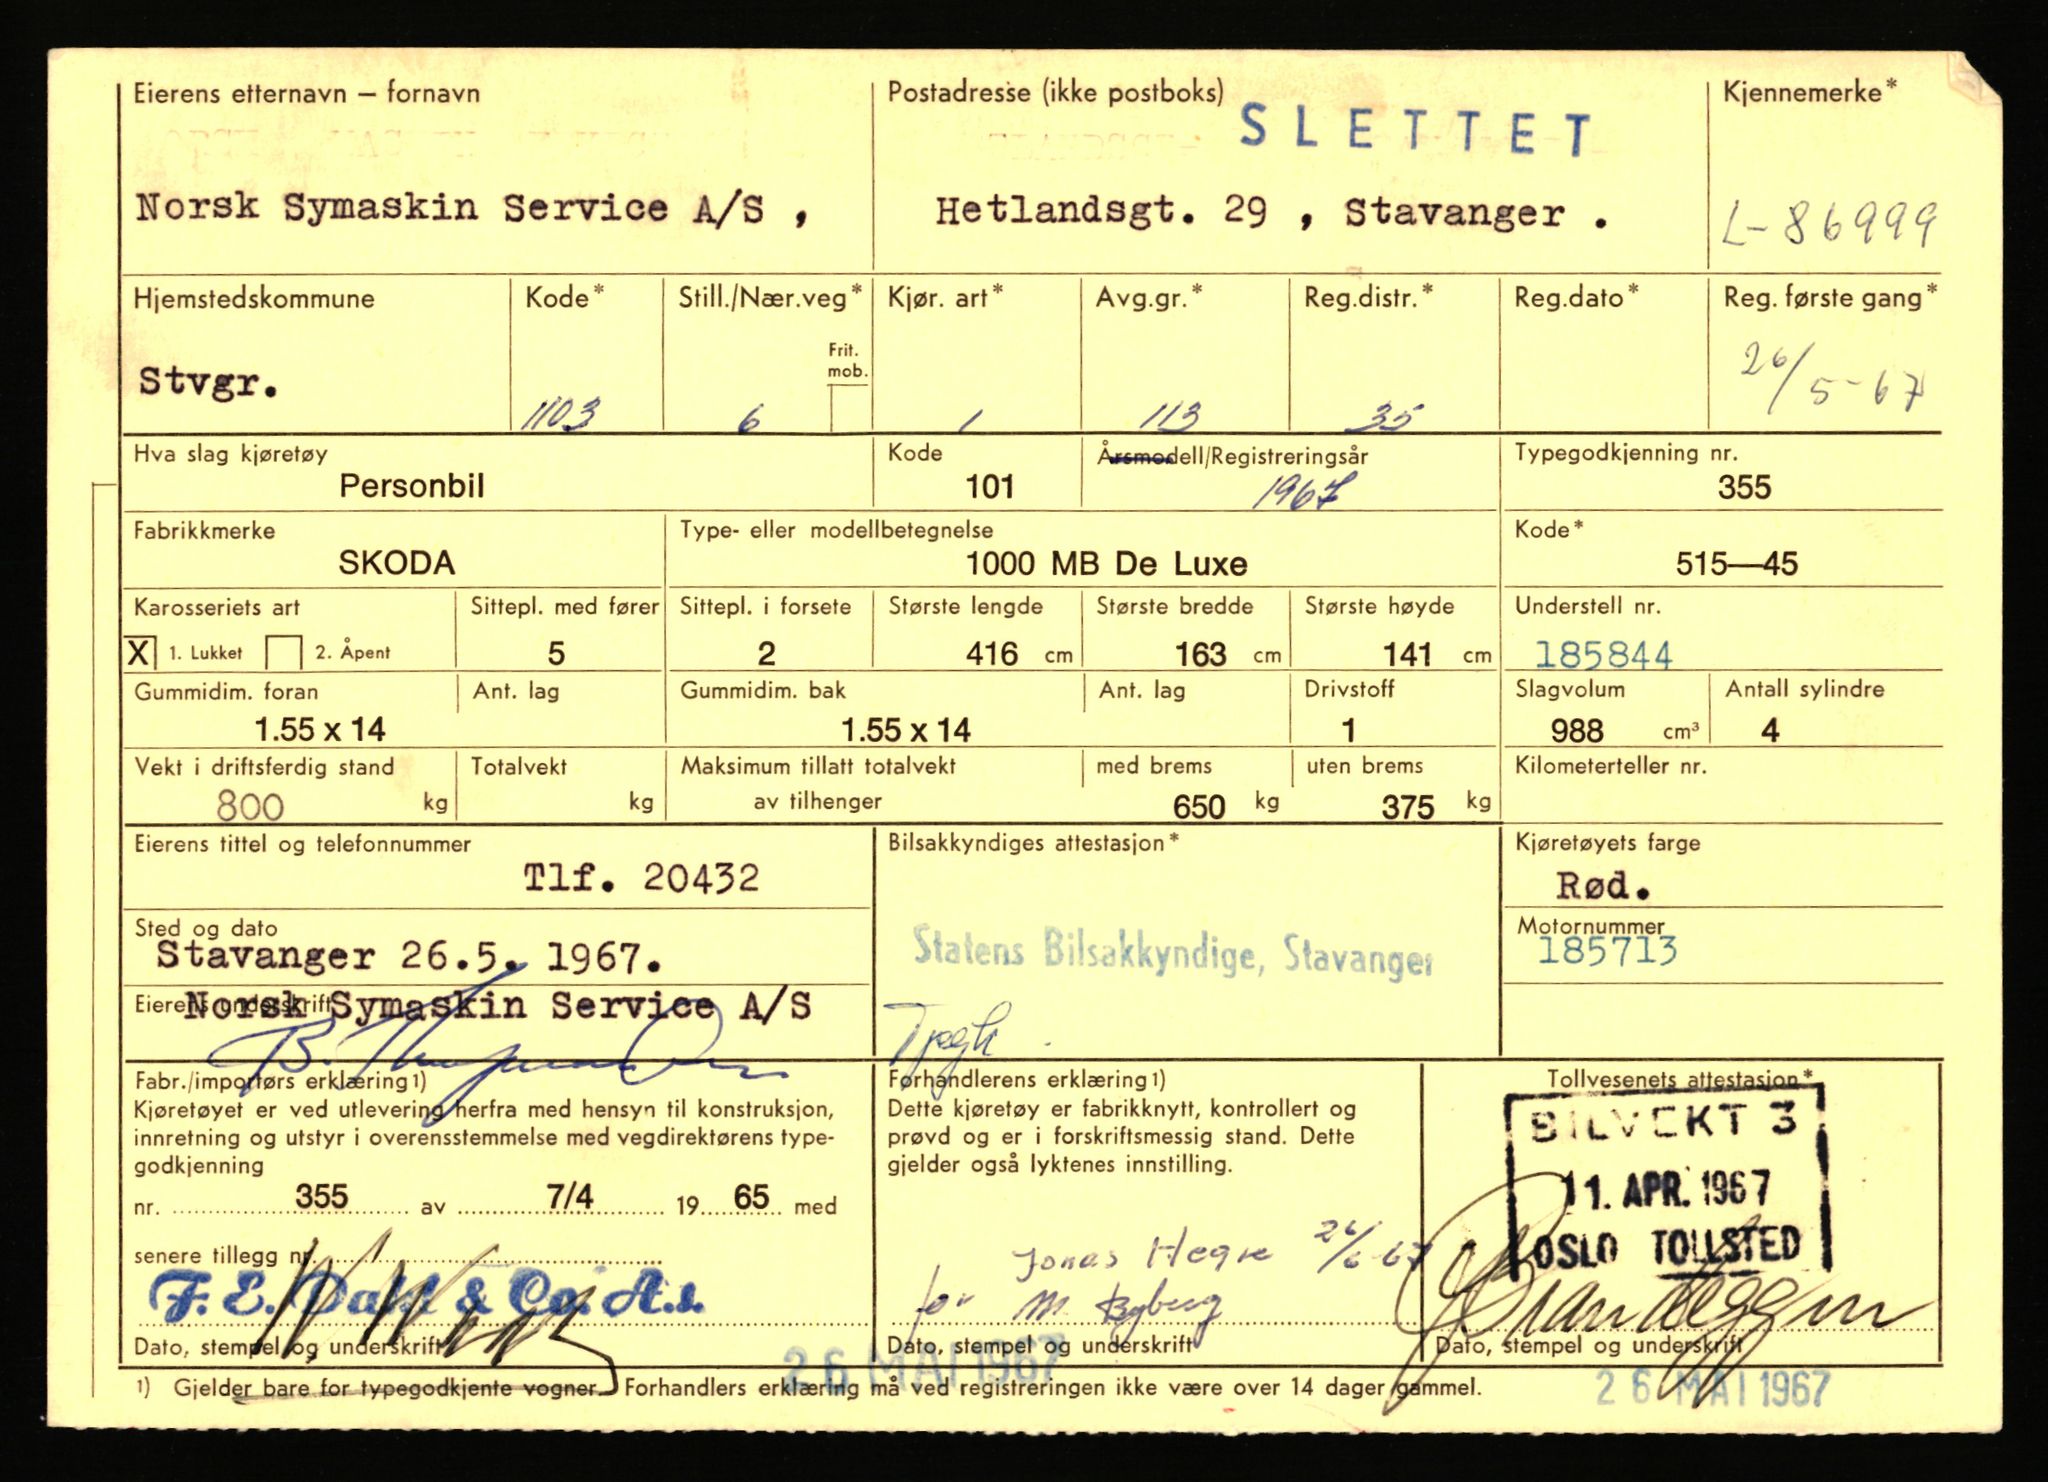 Eierens etternavn – fornavn
Postadresse (ikke postboks)
Kjennemerke*
SLETTET
Norsk Symaskin Service A/S ,
Hetlandsgt. 29 , Stavanger .
L-86999
Hjemstedskommune
Kode*
Still./Nær.veg*
Kjør. art*
Avg.gr.*
Reg.distr.*
Reg.dato*
Reg. første gang*
Frit.
mob.
Stvgr.
1103
6
1
113
35
26/5-67
Hva slag kjøretøy
Kode
Årsmodell/Registreringsår
Typegodkjenning nr.
Personbil
101
1967
355
Fabrikkmerke
Type- eller modellbetegnelse
Kode*
SKODA
1000 MB De Luxe
515—45
Karosseriets art
Sittepl. med fører
Sittepl. i forsete
Største lengde
Største bredde
Største høyde
Understell nr.
X 1. Lukket
2. Åpent
5
2
416 cm
163 cm
141 cm
185844
Gummidim. foran
Ant. lag
Gummidim. bak
Ant. lag
Drivstoff
Slagvolum
Antall sylindre
1.55 x 14
1.55 x 14
1
988 cm³
4
Vekt i driftsferdig stand
Totalvekt
Maksimum tillatt totalvekt
med brems
uten brems
Kilometerteller nr.
800 kg
kg
av tilhenger
650 kg
375 kg
Eierens tittel og telefonnummer
Bilsakkyndiges attestasjon*
Kjøretøyets farge
Tlf. 20432
Rød.
Sted og dato
Motornummer
Stavanger 26.5. 1967.
Statens Bilsakkyndige, Stavanger
185713
Eierens underskrift
Norsk Symaskin Service A/S
Typgk
Fabr./importørs erklæring1)
Kjøretøyet er ved utlevering herfra med hensyn til konstruksjon,
innretning og utstyr i overensstemmelse med vegdirektørens type-
godkjenning
nr. 355 av 7/4 1965 med
senere tillegg nr.
F. E. Dahl & Co. A.s.
Dato, stempel og underskrift
Forhandlerens erklæring1)
Dette kjøretøy er fabrikknytt, kontrollert og
prøvd og er i forskriftsmessig stand. Dette
gjelder også lyktenes innstilling.
Jonas Hegre
for M Byberg
Dato, stempel og underskrift
26 MAI 1967
Tollvesenets attestasjon*
BILVEKT 3
11. APR. 1967
OSLO TOLLSTED
Dato, stempel og underskrift
1) Gjelder bare for typegodkjente vogner. Forhandlers erklæring må ved registreringen ikke være over 14 dager gammel.
26 MAI 1967